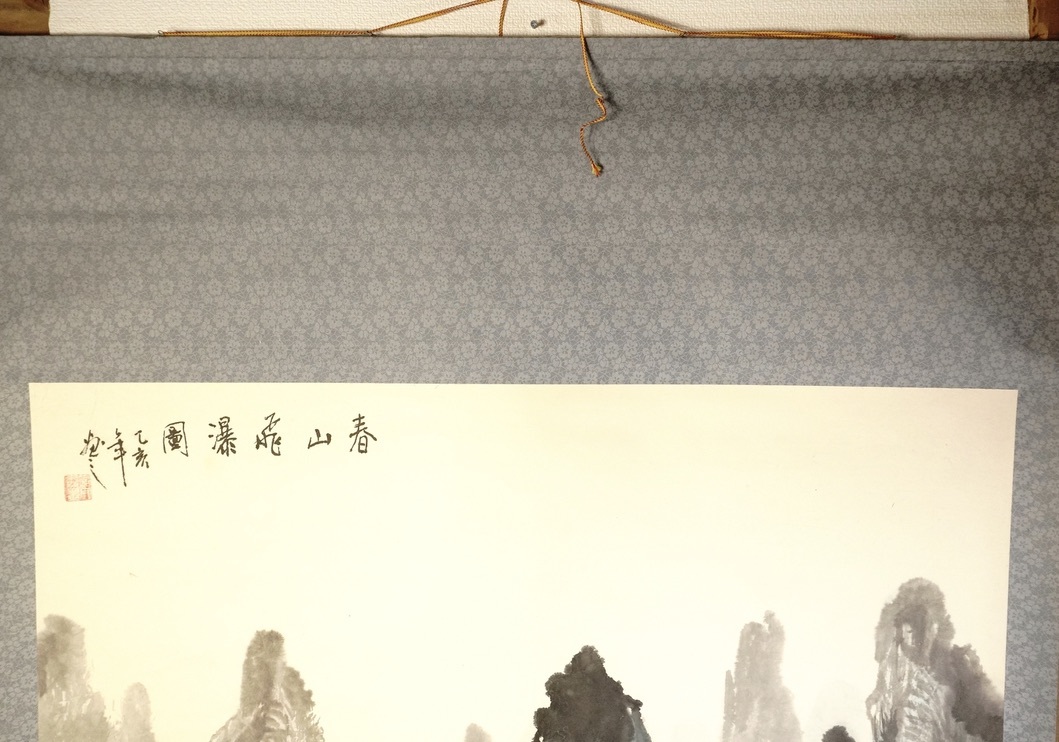 春山飛瀑圖
乙亥
年